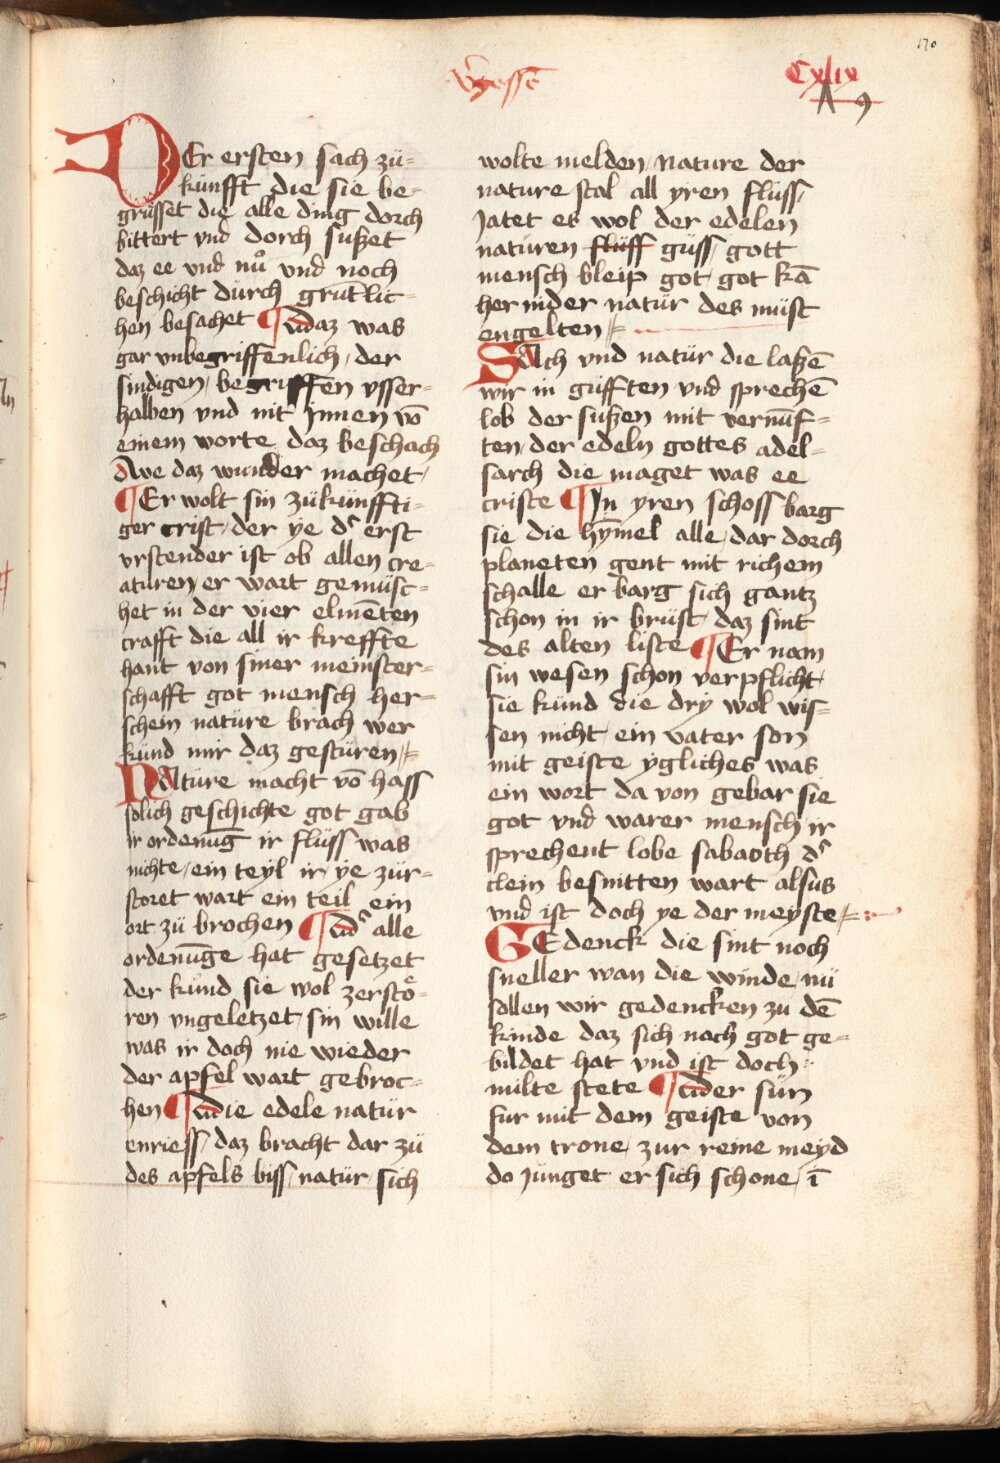 170
Vgessē
Cxlix
DEr ersten sach zü=
künfft die sie be=
grüsset die alle ding dorch
bittert vnd dorch sußet
daz ee vnd nuͦ vnd noch
beschicht dürch grūtlic=
hen besachet ¶ daz was
gar vnbegriffenlich / der
sindigen / begriffen vsser=
halben vnd nit Jnnen vō
einem worte daz beschach
Awe daz wunder machet /
¶ Er wolt sin zükünffti=
ger crist / der ye dˢ erst
vrstender ist ob allen cre=
aturen er wart gemüsc=
het in der vier elmēten
crafft die all ir kreffte
hant von siner meinster=
schafft got mensch her=
schein natüre brach wer
künd mir daz gestüren /=
NAtüre macht vō hass
solich geschichte got gab
ir ordenūg ir flüss was
nichte / ein teyl ir ye zür=
storet wart ein teil ein
ort zü brochen ¶ dˢ alle
ordenūge hat gesetzet
der künd sie wol zerstö=
ren vngeletzet / sin wille
was ir doch nie wieder
der apfel wart gebroc=
hen ¶ die edele natür
enriess / daz bracht dar zü
des apfels biss / natür sich
wolte melden / nature der
nature stal all yren flüss /
Jatet es wol der edelen
natüren flüff güss / gott
mensch bleip got / got kā
her nider natür des müst
engelten /=
SAch vnd natür die laßē
wir in güfften vnd sprechē
lob der sußen mit vernüf=
ten / der edeln gottes adel=
sarch die maget was ee
criste ¶ Jn yren schoss barg
sie die hȳmel alle / dar dorch
planeten gent mit richem
schalle er barg sich gantz
schon in ir brüst / daz sint
des alten liste ¶ Er nam
sin wesen schon verpflicht /
sie künd die dry wol wis=
sen nicht / ein vater son
mit geiste ygliches was
ein wort da von gebar sie
got vnd warer mensch ir
sprechent lobe sabaoth dˢ
clein besnitten wart alsus
vnd ist doch ye der meyste /=
GEdenck die sint noch
sneller wan die winde / nü
sollen wir gedencken zu dē
kinde daz sich nach got ge=
bildet hat vnd ist doch
milte stete ¶ der sün
fur mit dem geiste von
dem trone / zur reine meyd
do jünget er sich schone / ī